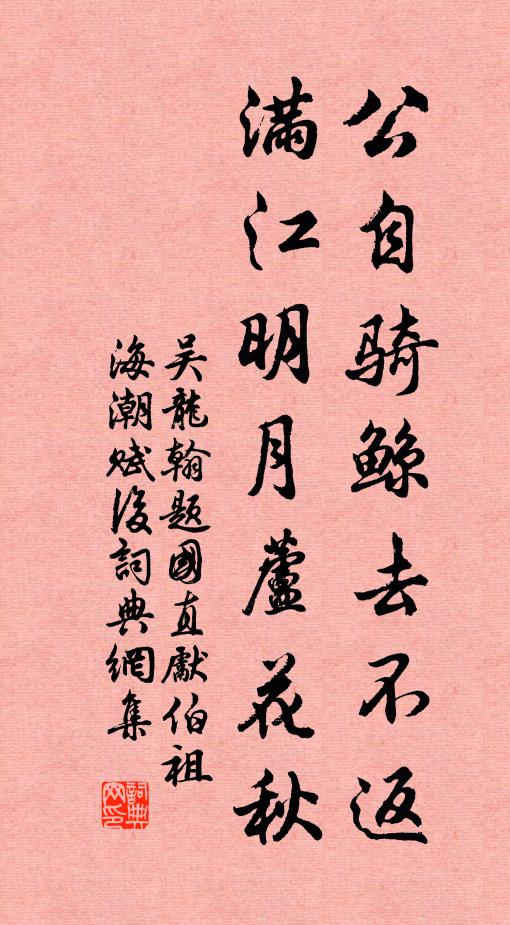 公自骑鲸去不返
满江明月蘆花秋
吴龍翰题國直獻伯祖
海潮赋後詞典網集
詞典
网印